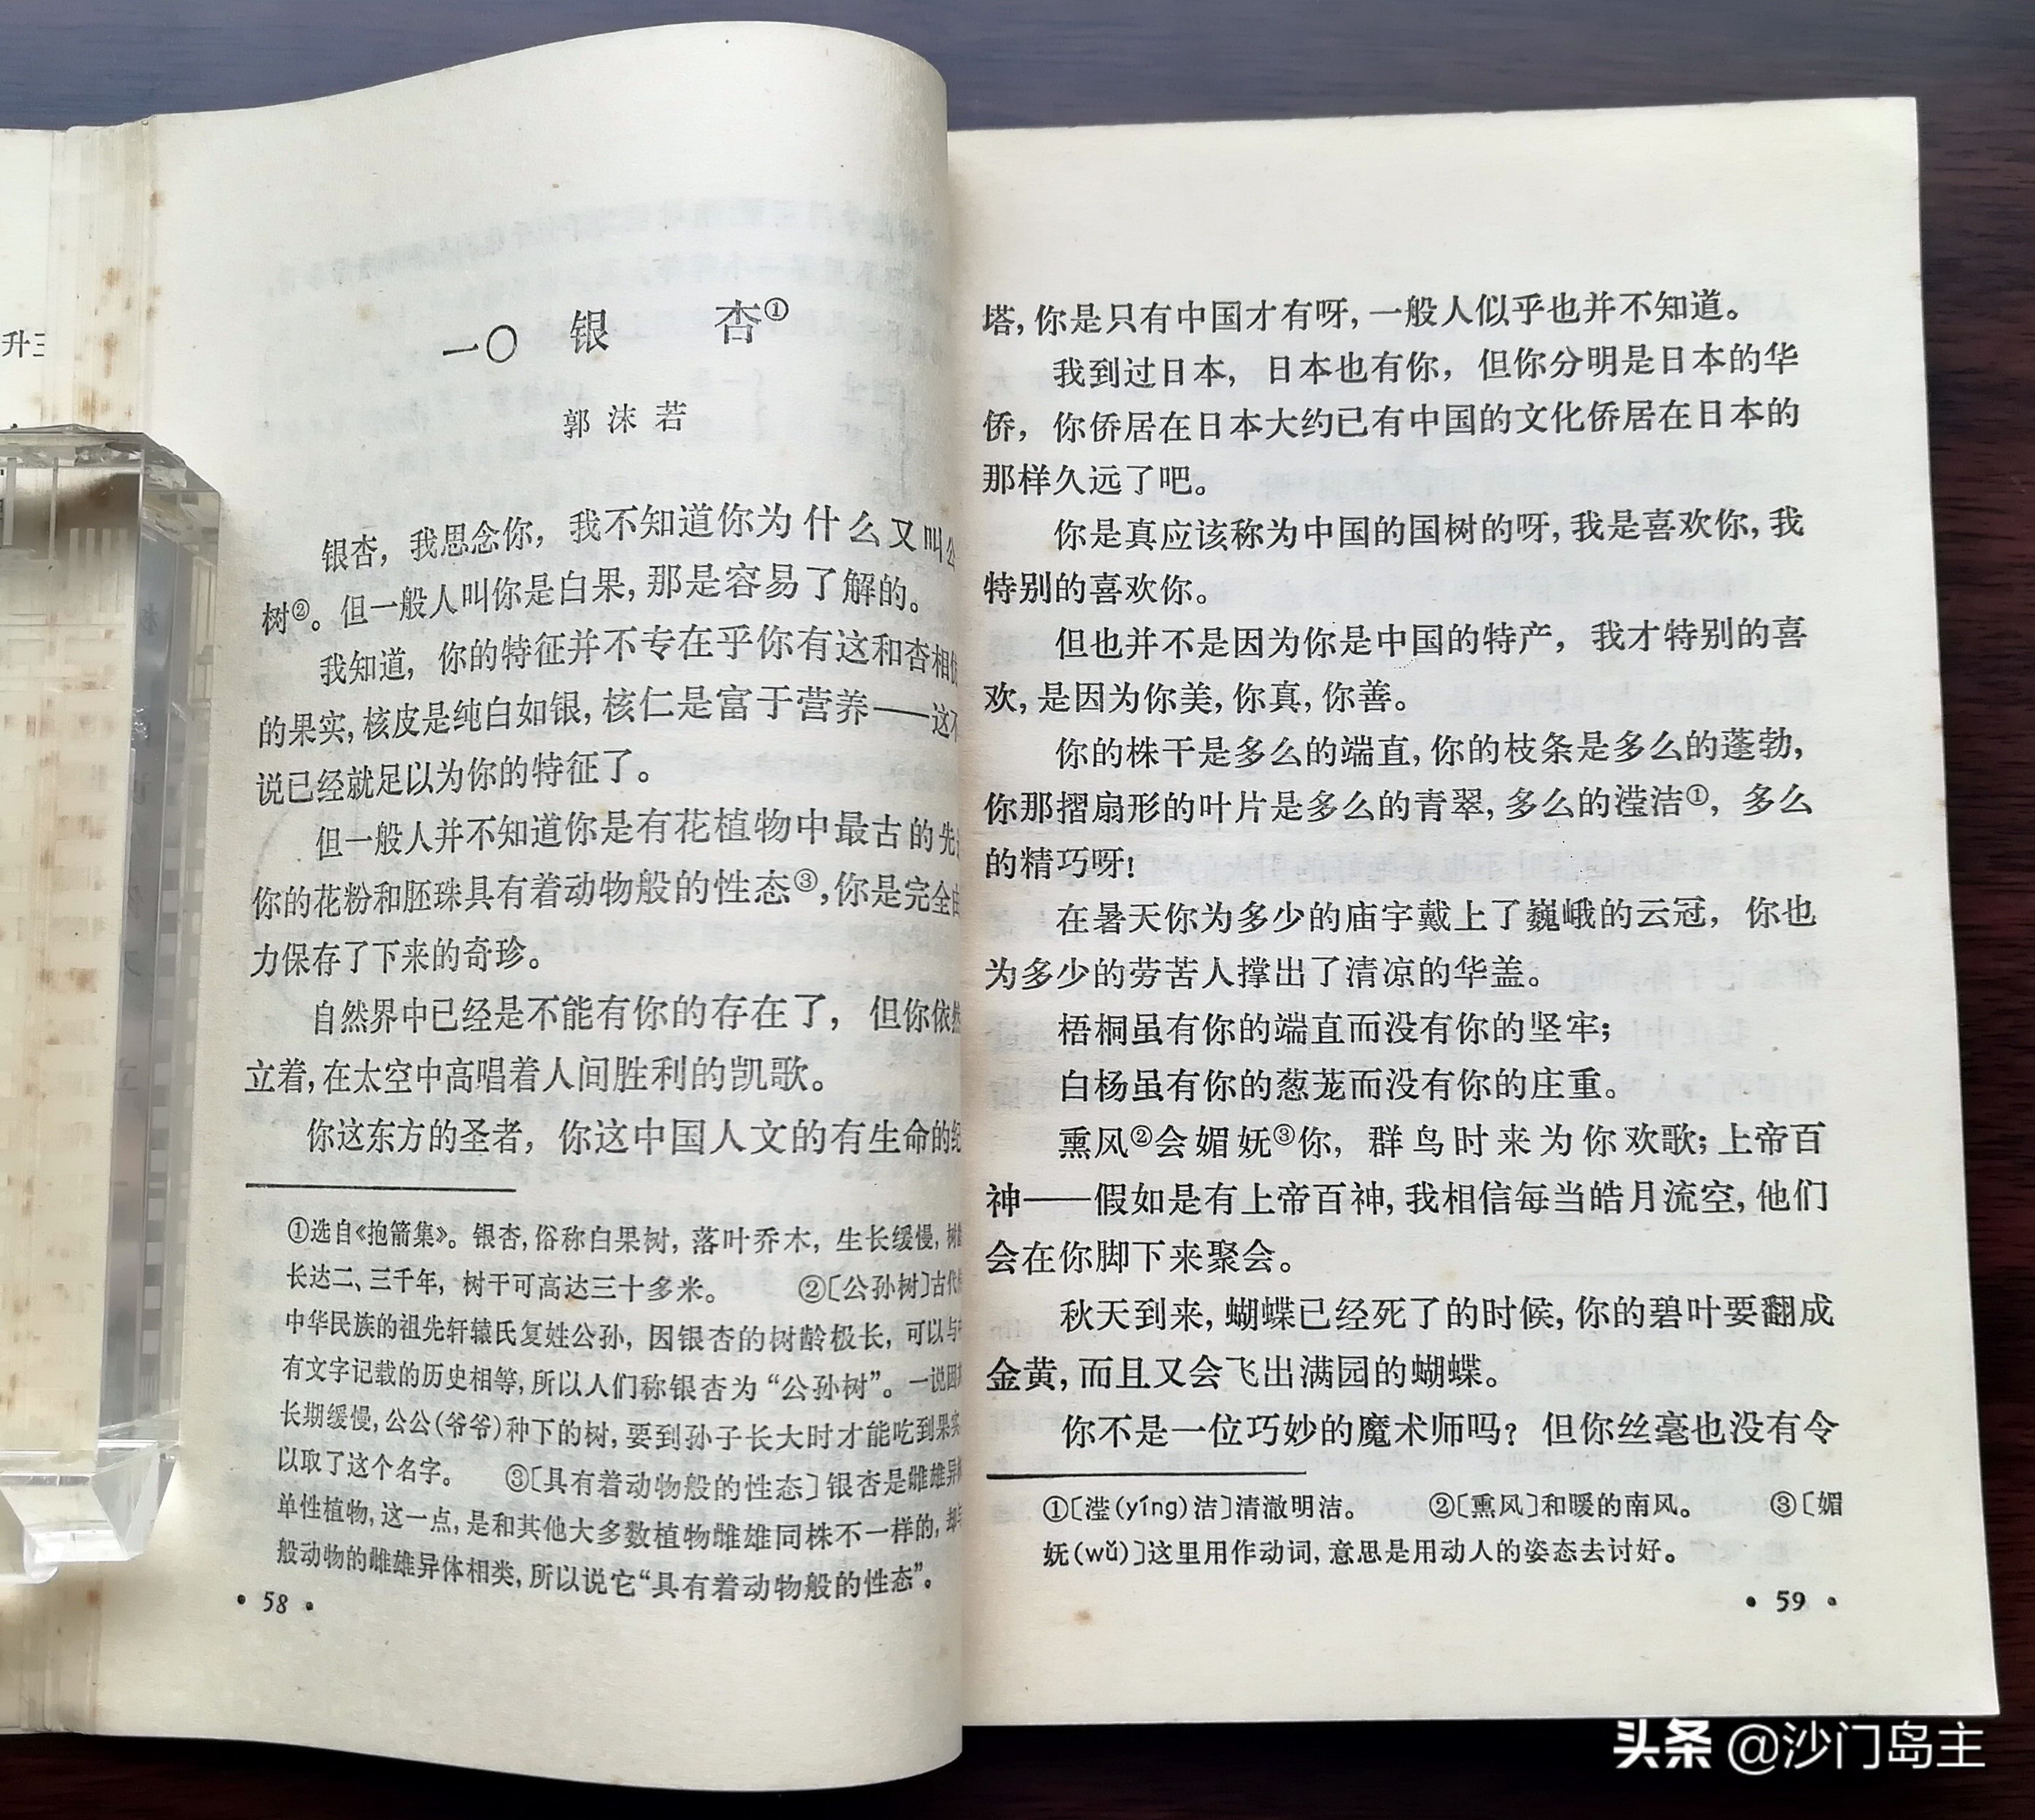 升三
一〇 银 杏①
郭沫若
银杏，我思念你，我不知道你为什么又叫公
树②。但一般人叫你是白果，那是容易了解的。
我知道，你的特征并不专在乎你有这和杏相
的果实，核皮是纯白如银，核仁是富于营养——这不
说已经就足以为你的特征了。
但一般人并不知道你是有花植物中最古的先
你的花粉和胚珠具有着动物般的性态③，你是完全由
力保存了下来的奇珍。
自然界中已经是不能有你的存在了，但你依然
立着，在太空中高唱着人间胜利的凯歌。
你这东方的圣者，你这中国人文的有生命的纪
①选自《抱箭集》。银杏，俗称白果树，落叶乔木，生长缓慢，树
长达二、三千年，树干可高达三十多米。 ②〔公孙树〕古代
中华民族的祖先轩辕氏复姓公孙，因银杏的树龄极长，可以与
有文字记载的历史相等，所以人们称银杏为“公孙树”。一说因
长期缓慢，公公(爷爷)种下的树，要到孙子长大时才能吃到果实
以取了这个名字。 ③〔具有着动物般的性态〕银杏是雌雄异
单性植物，这一点，是和其他大多数植物雌雄同株不一样的，却
般动物的雌雄异体相类，所以说它“具有着动物般的性态”。
• 58 •
塔，你是只有中国才有呀，一般人似乎也并不知道。
我到过日本，日本也有你，但你分明是日本的华
侨，你侨居在日本大约已有中国的文化侨居在日本的
那样久远了吧。
你是真应该称为中国的国树的呀，我是喜欢你，我
特别的喜欢你。
但也并不是因为你是中国的特产，我才特别的喜
欢，是因为你美，你真，你善。
你的株干是多么的端直，你的枝条是多么的蓬勃，
你那摺扇形的叶片是多么的青翠，多么的滢洁①，多么
的精巧呀！
在暑天你为多少的庙宇戴上了巍峨的云冠，你也
为多少的劳苦人撑出了清凉的华盖。
梧桐虽有你的端直而没有你的坚牢；
白杨虽有你的葱茏而没有你的庄重。
熏风②会媚妩③你，群鸟时来为你欢歌；上帝百
神——假如是有上帝百神，我相信每当皓月流空，他们
会在你脚下来聚会。
秋天到来，蝴蝶已经死了的时候，你的碧叶要翻成
金黄，而且又会飞出满园的蝴蝶。
你不是一位巧妙的魔术师吗？但你丝毫也没有令
①〔滢(yíng)洁〕清澈明洁。 ②〔熏风〕和暖的南风。 ③〔媚
妩(wǔ)〕这里用作动词，意思是用动人的姿态去讨好。
• 59 •
头条 @沙门岛主